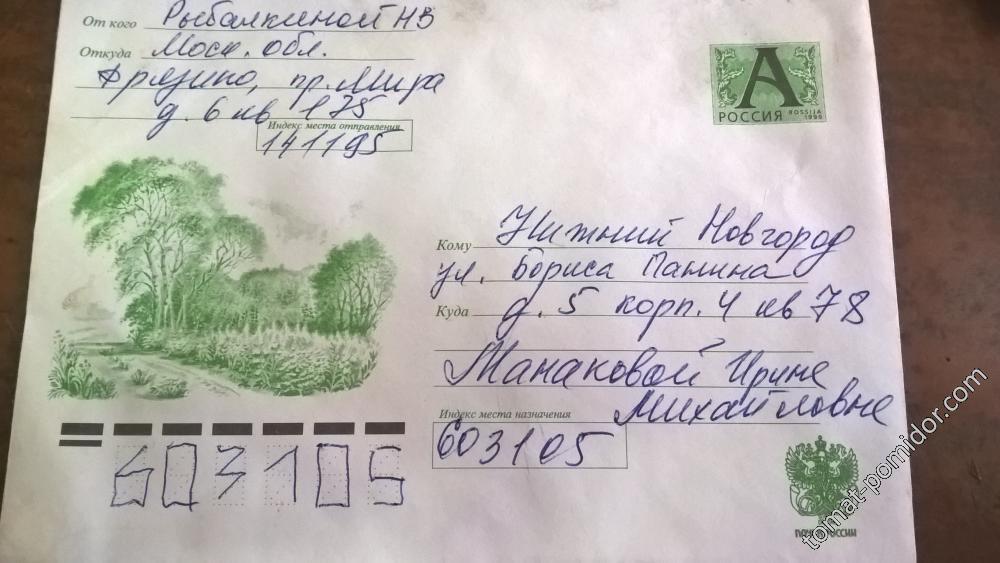 От кого Рыбалкиной НВ
Откуда Моск. обл.
Фрязино, пр. Мира
д. 6 кв 175
Индекс места отправления
141195
А
РОССИЯ ROSSIJA
Кому Нижний Новгород
ул. Бориса Панина
Куда д. 5 корп. 4 кв 78
Манаковой Ирине
Михайловне
Индекс места назначения
603105
603105
tomat-pomidor.com